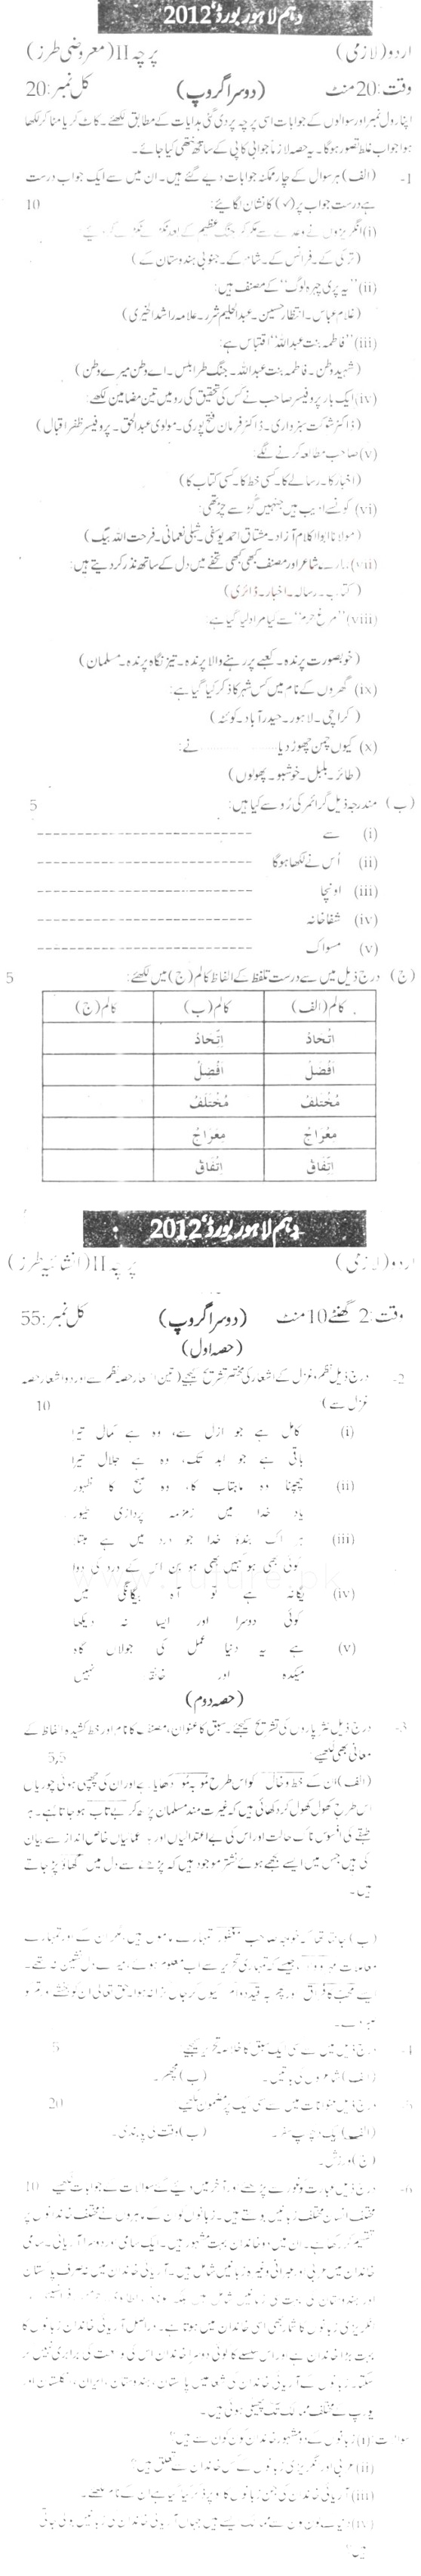 دہم لاہور بورڈ 2012ء
اردو (لازمی) پرچہ II (معروضی طرز)
وقت: 20 منٹ (دوسرا گروپ) کل نمبر: 20
اپنا رول نمبر اور سوالوں کے جوابات اسی پرچہ پر دی گئی ہدایات کے مطابق لکھئے۔ کاٹ کر یا مٹا کر لکھا
ہوا جواب غلط تصور ہوگا۔ یہ حصہ لازماً جوابی کاپی کے ساتھ نتھی کیا جائے۔
1- (الف) ہر سوال کے چار ممکنہ جوابات دیے گئے ہیں۔ ان میں سے ایک جواب درست
ہے درست جواب پر (✓) کا نشان لگائیے: 10
(i) انگریزوں نے وعدے سے مکر کر جنگ عظیم کے بعد ٹکڑے ٹکڑے کر دیے:
(ترکی کے۔ فرانس کے۔ شام کے۔ جنوبی ہندوستان کے)
(ii) "یہ پری چہرہ لوگ" کے مصنف ہیں:
(غلام عباس۔ انتظار حسین۔ عبدالحلیم شرر۔ علامہ راشد الخیری)
(iii) "فاطمہ بنت عبداللہ" اقتباس ہے:
(شہید وطن۔ فاطمہ بنت عبداللہ۔ جنگ طرابلس۔ اے وطن میرے وطن)
(iv) ایک بار پروفیسر صاحب نے کس کی تحقیق کی رو میں تین مضامین لکھے:
(ڈاکٹر شوکت سبزواری۔ ڈاکٹر فرمان فتح پوری۔ مولوی عبدالحق۔ پروفیسر ظفر اقبال)
(v) صاحب مطالعہ کرنے لگے:
(اخبار کا۔ رسالے کا۔ کسی خط کا۔ کسی کتاب کا)
(vi) کونسے ادیب ہیں جنہیں گڑ سے چڑ تھی:
(مولانا ابوالکلام آزاد۔ مشتاق احمد یوسفی۔ شبلی نعمانی۔ فرحت اللہ بیگ)
(vii) ہمارے شاعر اور مصنف کبھی کبھی تحفے میں دل کے ساتھ نذر کر دیتے ہیں:
(کتاب۔ رسالہ۔ اخبار۔ ڈائری)
(viii) "مرغ حرم" سے کیا مراد لیا گیا ہے:
(خوبصورت پرندہ۔ کعبے پر رہنے والا پرندہ۔ تیز نگاہ پرندہ۔ مسلمان)
(ix) گھروں کے نام میں کس شہر کا ذکر کیا گیا ہے:
(کراچی۔ لاہور۔ حیدر آباد۔ کوئٹہ)
(x) کیوں چمن چھوڑ دیا نے:
(طائر۔ بلبل۔ خوشبو۔ پھولوں)
(ب) مندرجہ ذیل گرائمر کی رُو سے کیا ہیں: 5
(i) سے
(ii) اُس نے لکھا ہوگا
(iii) اونچا
(iv) شفاخانہ
(v) مسواک
(ج) درج ذیل میں سے درست تلفظ کے الفاظ کالم (ج) میں لکھئے: 5
کالم (الف) کالم (ب) کالم (ج)
اتُحاد اتِّحَاد
اَفضَل اَفُضِلُ
مُخْتَلَفُ مُخْتَلِفُ
مِعُرَاج مِعْرَاج
اِتِّفَاق اتُفَاق
دہم لاہور بورڈ 2012ء
اردو (لازمی) پرچہ II (انشائیہ طرز)
وقت: 2 گھنٹے 10 منٹ (دوسرا گروپ) کل نمبر: 55
(حصہ اول)
2- درج ذیل نظم و غزل کے اشعار کی مختصر تشریح کیجیے (تین اشعار حصہ نظم سے اور دو اشعار حصہ
غزل سے) 10
(i) کامل ہے جو ازل سے، وہ ہے کمال تیرا
باقی ہے جو ابد تک، وہ ہے جلال تیرا
(ii) چھپنا وہ ماہتاب کا، وہ صبح کا ظہور
یاد خدا میں زمزمہ پردازی طیور
(iii) ہر اک بندہ خدا جو درد میں ہے مبتلا
کوئی بھی ہو کہیں بھی ہو بن اس کے درد کی دوا
(iv) یگانہ ہے تو آہ بیگانگی میں
کوئی دوسرا اور ایسا نہ دیکھا
(v) ہے یہ دنیا عمل کی جولاں گاہ
میکدہ اور خانقہ نہیں
(حصہ دوم)
3- درج ذیل نثر پاروں کی تشریح کیجئے۔ سبق کا عنوان، مصنف کا نام اور خط کشیدہ الفاظ کے
معانی بھی لکھیے: 5,5
(الف) ان کے خط و خال کو اس طرح مُو بہ مُو دکھایا ہے اور ان کی چھپی ہوئی چوریاں
اس طرح کھول کھول کر دکھائی ہیں کہ غیرت مند مسلمان پڑھ کر بے تاب ہو جاتا ہے۔ ہر
طبقے کی افسوس ناک حالت اور اس کی بے اعتدالیاں اور بد عملیاں خاص انداز سے بیان
کی ہیں جس میں ایسے بجھے ہوئے نشتر موجود ہیں کہ پڑھنے سے دل میں گھاؤ پڑ جاتے
ہیں۔
4- درج ذیل میں سے کسی ایک سبق کا خلاصہ تحریر کیجیے 5
(الف) شاعروں کی باتیں۔ (ب) مچھر۔
5- درج ذیل عنوانات میں سے کسی ایک پر مضمون لکھیے 20
(الف) ایک دلچسپ سفر۔ (ب) وقت کی پابندی۔
(ج) ورزش۔
6- درج ذیل عبارت کو غور سے پڑھیے اور آخر میں دیے گئے سوالات کے جوابات لکھیے 10
مختلف انسان مختلف زبانیں بولتے ہیں۔ زبانوں کو ان کے ماہروں نے مختلف خاندانوں پر
تقسیم کر رکھا ہے۔ ان میں دو خاندان بہت مشہور ہیں۔ ایک سامی اور دوسرا آریائی۔ سامی
خاندان میں عربی اور عبرانی وغیرہ زبانیں شامل ہیں۔ آریائی خاندان میں نہ صرف پاکستان
انگریزی زبانوں کا شمار بھی اسی خاندان میں ہوتا ہے۔ دراصل آریائی خاندان زبانوں کا
بہت بڑا خاندان ہے اور اس سلسلے کا کوئی دوسرا خاندان اس کی وسعت کی برابری نہیں کر
سکتا۔ زبانوں کے آریائی خاندان کی شعاعیں پاکستان، ہندوستان، ایران، انگلستان اور
یورپ کے مختلف ممالک تک پھیلی ہوئی ہیں۔
سوالات: (i) زبانوں کے دو مشہور خاندان کون کون سے ہیں؟
(ii) عربی اور انگریزی زبانوں کے کس خاندان سے تعلق ہیں؟
(iii) آریائی خاندان کی جن زبانوں کا اوپر ذکر کیا گیا ہے ان کے نام لکھیے۔